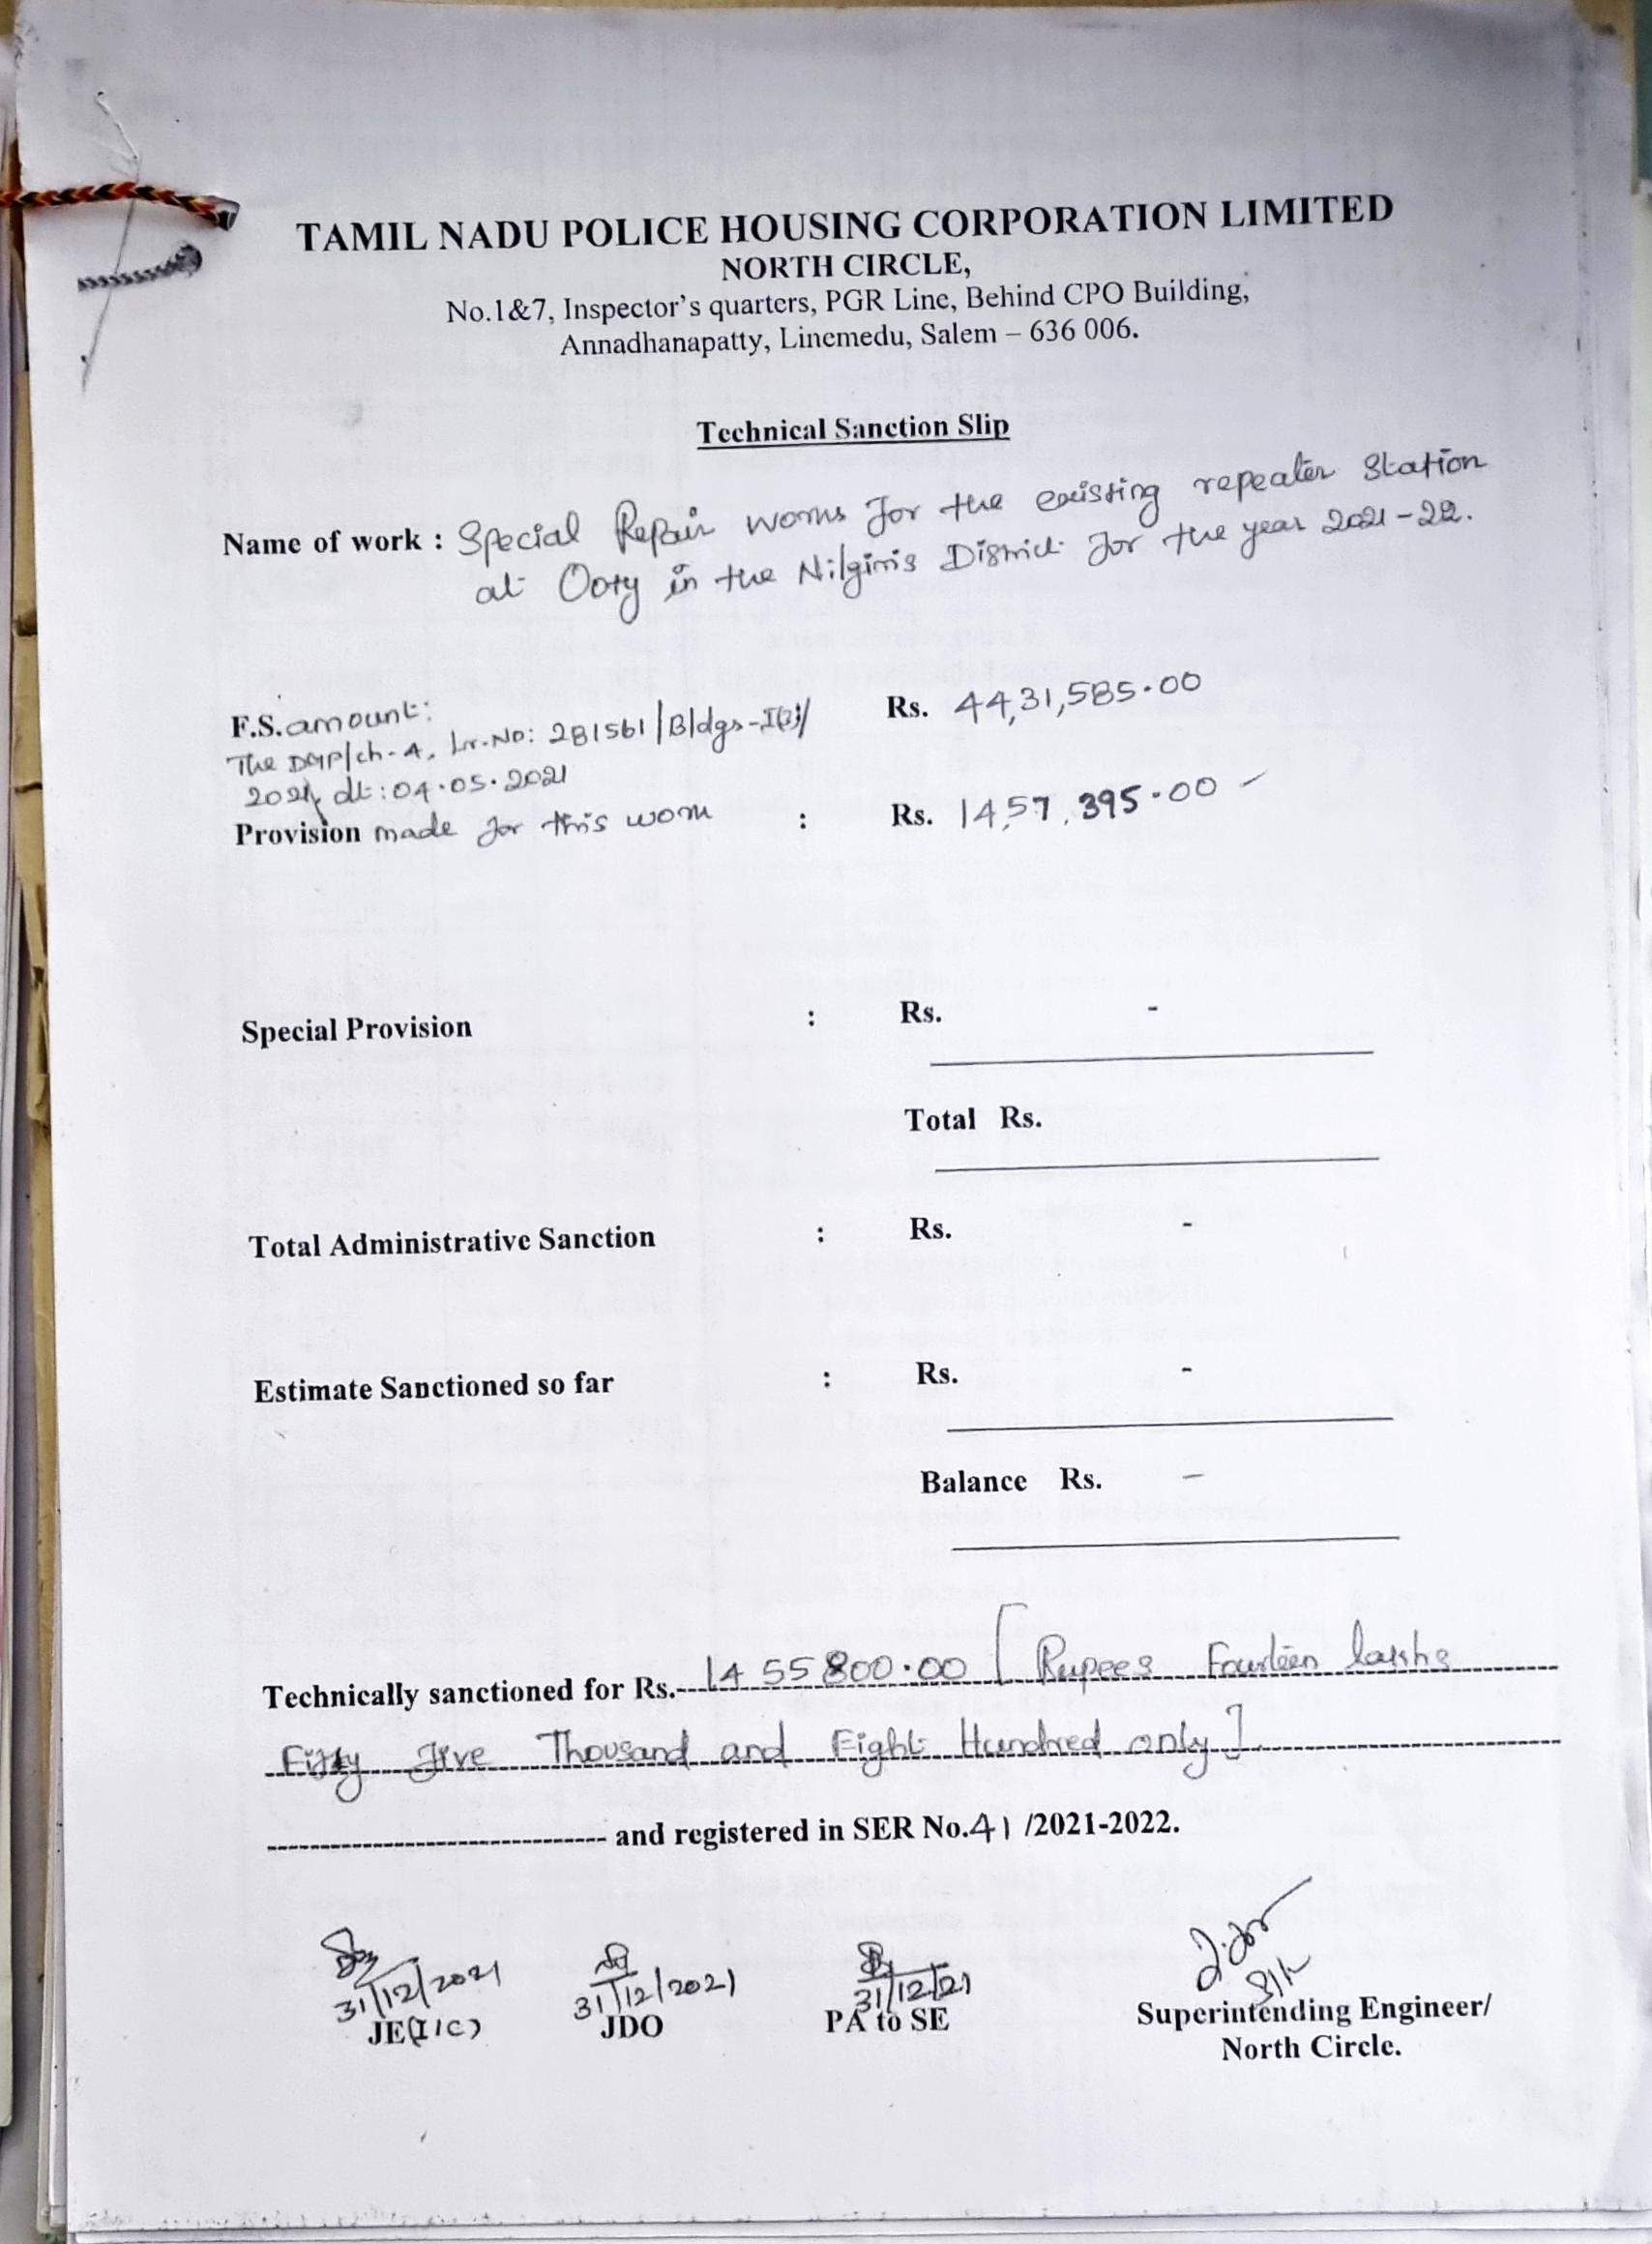 TAMIL NADU POLICE HOUSING CORPORATION LIMITED
NORTH CIRCLE,
No.1&7, Inspector's quarters, PGR Line, Behind CPO Building,
Annadhanapatty, Linemedu, Salem – 636 006.
Technical Sanction Slip
Name of work : Special Repair works for the existing repeater Station
at Ooty in the Nilgiris District for the year 2021-22.
F.S. amount: Rs. 44,31,585.00
The DGP/ch-4, Lr.No: 281561/Bldgs-I(3)/
2021, dt: 04.05.2021
Provision made for this work : Rs. 14,57,395.00 -
Special Provision : Rs. -
Total Rs.
Total Administrative Sanction : Rs. -
Estimate Sanctioned so far : Rs. -
Balance Rs. -
Technically sanctioned for Rs. 1455800.00 [Rupees Fourteen lakhs
Fifty five Thousand and Eight Hundred only]
and registered in SER No.41 /2021-2022.
31/12/2021 31/12/2021 31/12/21
JE(I/C) JDO PA to SE Superintending Engineer/
North Circle.